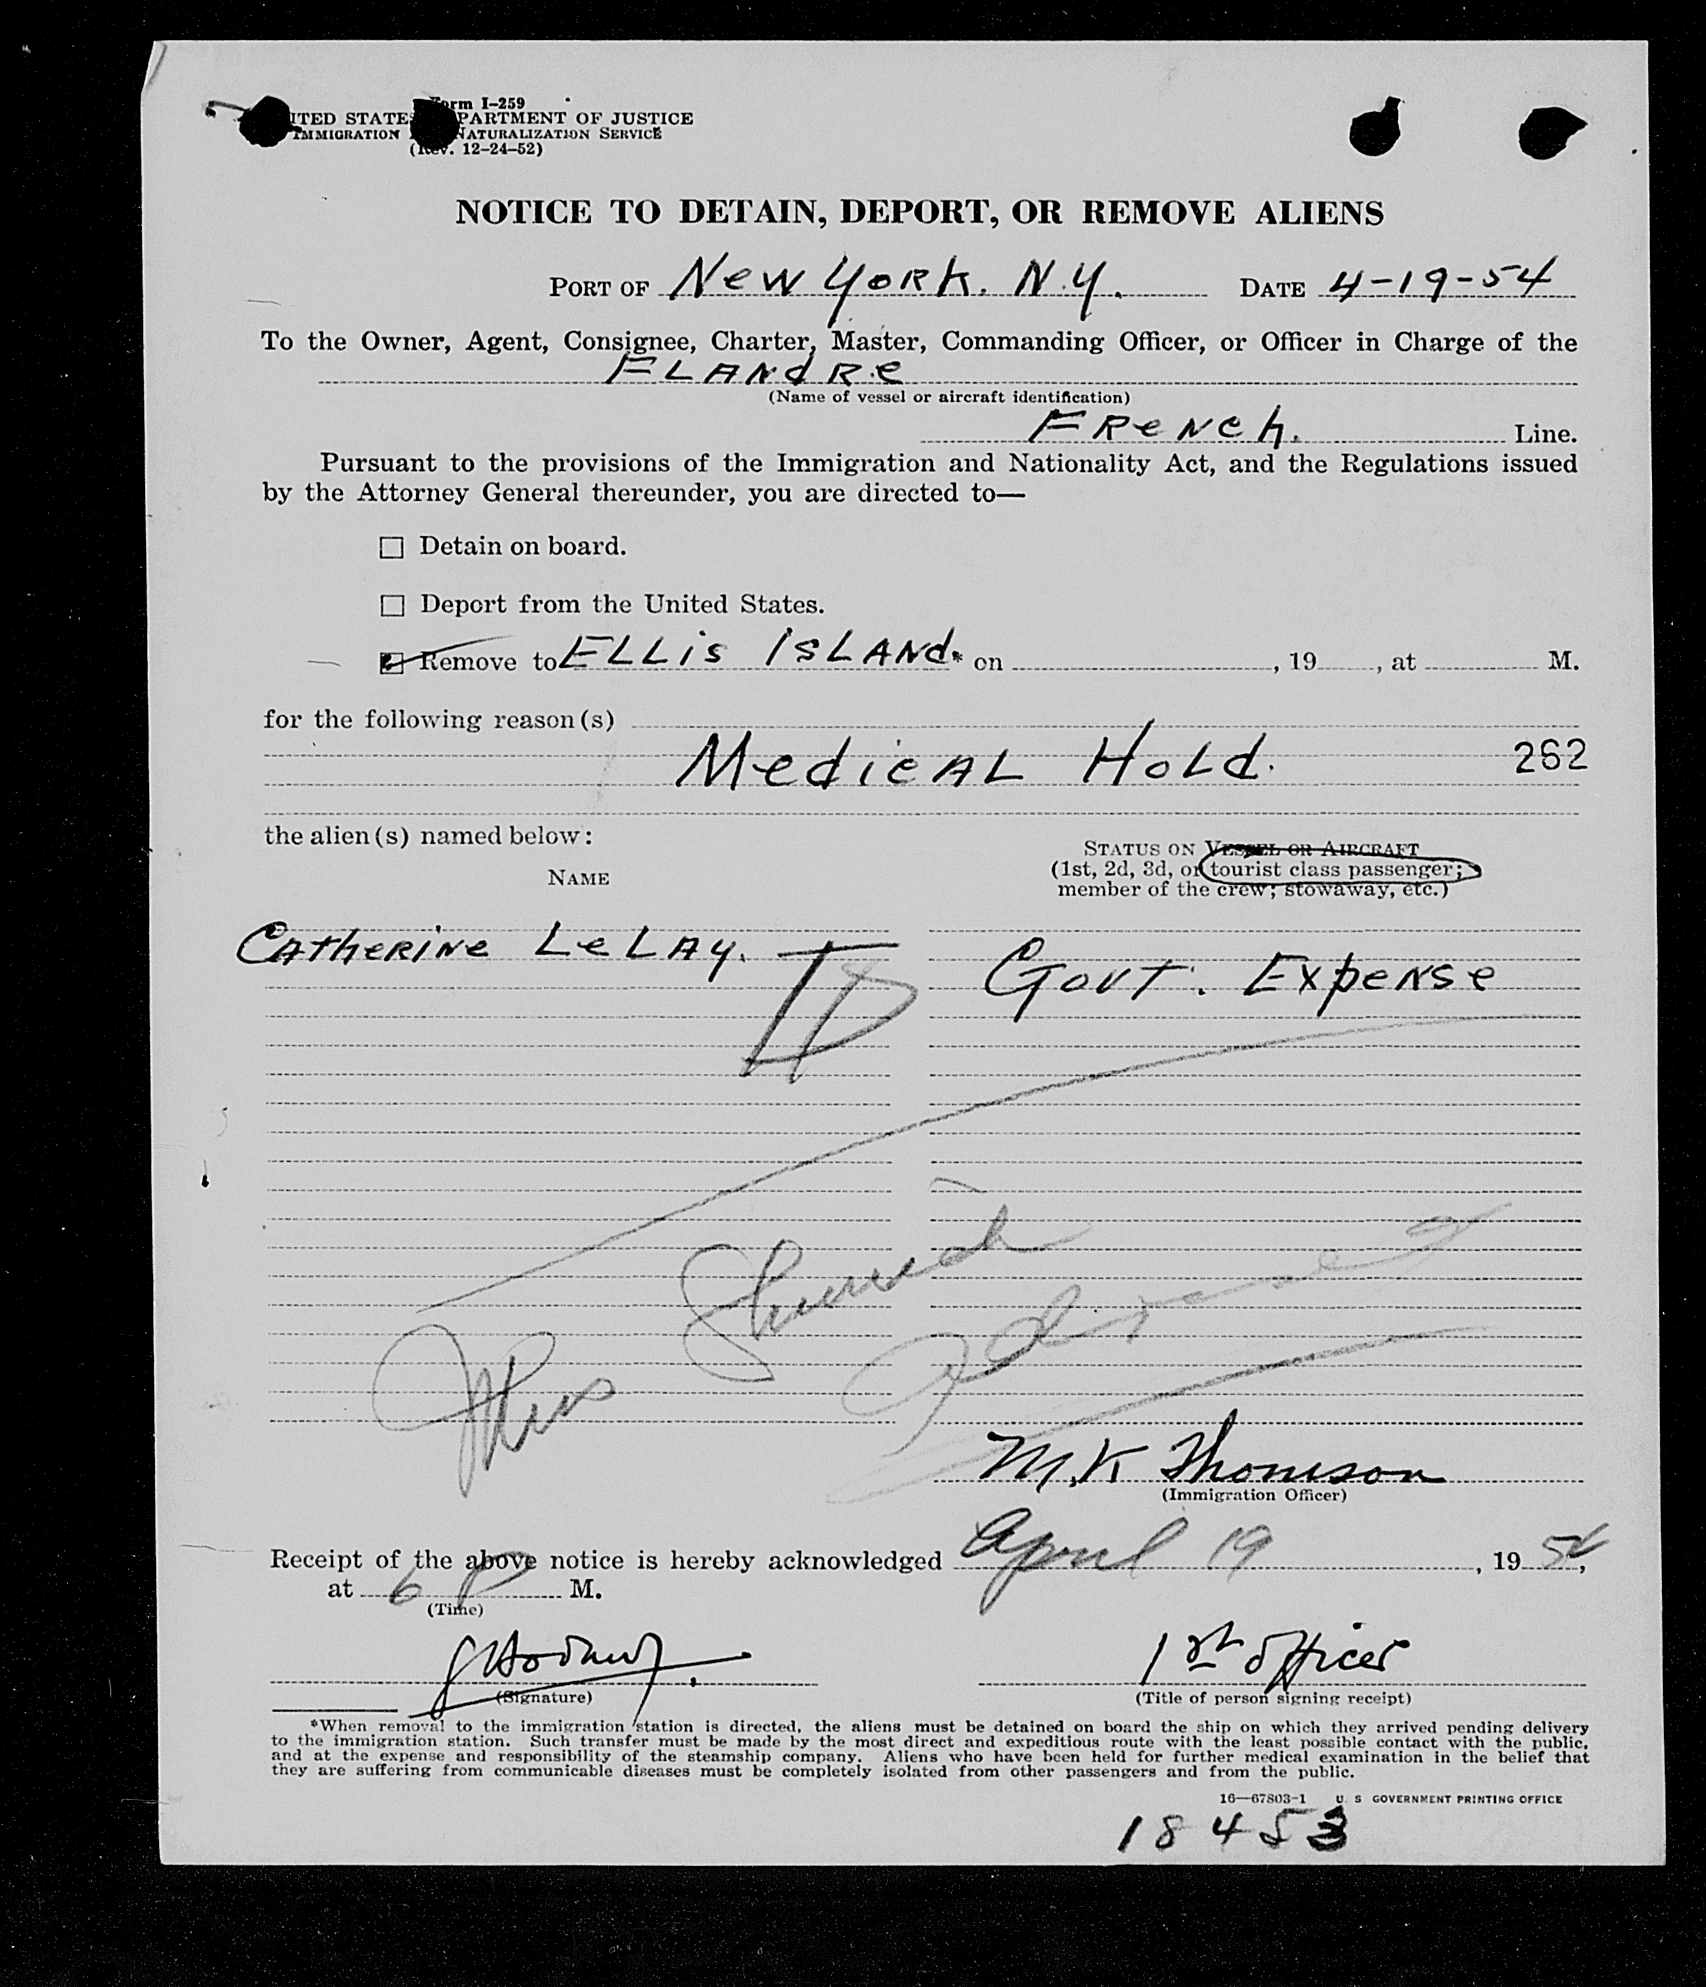 Form I-259
UNITED STATES DEPARTMENT OF JUSTICE
IMMIGRATION AND NATURALIZATION SERVICE
(Rev. 12-24-52)
NOTICE TO DETAIN, DEPORT, OR REMOVE ALIENS
PORT OF New York. N.Y. DATE 4-19-54
To the Owner, Agent, Consignee, Charter, Master, Commanding Officer, or Officer in Charge of the
FLANdRe
(Name of vessel or aircraft identification)
FReNch. Line.
Pursuant to the provisions of the Immigration and Nationality Act, and the Regulations issued
by the Attorney General thereunder, you are directed to—
☐ Detain on board.
☐ Deport from the United States.
☑ Remove to ELLis ISLANd.* on , 19 , at M.
for the following reason(s)
MedicAL HoLd. 262
the alien(s) named below:
NAME
STATUS ON VESSEL OR AIRCRAFT
(1st, 2d, 3d, or tourist class passenger;
member of the crew; stowaway, etc.)
CAtheRiNe LeLAy.
Govt. Expense
M.K Thomson
(Immigration Officer)
Receipt of the above notice is hereby acknowledged April 19, 19 54,
at 6 P M.
(Time)
1st officer
(Signature)
(Title of person signing receipt)
*When removal to the immigration station is directed, the aliens must be detained on board the ship on which they arrived pending delivery
to the immigration station. Such transfer must be made by the most direct and expeditious route with the least possible contact with the public,
and at the expense and responsibility of the steamship company. Aliens who have been held for further medical examination in the belief that
they are suffering from communicable diseases must be completely isolated from other passengers and from the public.
16—67803-1 U. S GOVERNMENT PRINTING OFFICE
18453